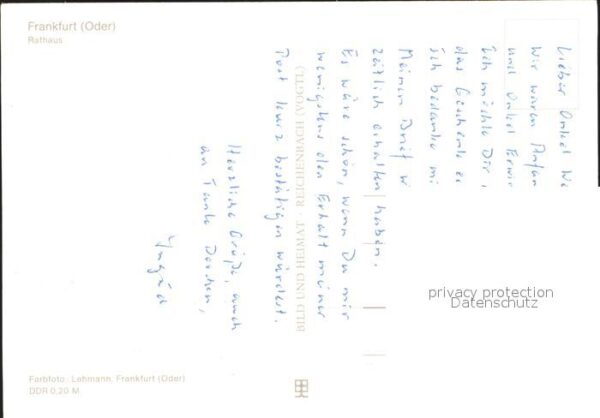 Frankfurt (Oder)
Rathaus
Lieber Onkel We
Wir waren Anfan
und Onkel Erwi
Ich möchte Dir,
das Geschenk e
Ich bedanke mi
Meinen Brief w
zeitlich erhalten haben.
Es wäre schön, wenn Du mir
wenigstens den Erhalt meiner
Post kurz bestätigen würdest.
Herzliche Grüße, auch
an Tante Dorchen,
Ingrid
BILD UND HEIMAT · REICHENBACH (VOGTL)
privacy protection
Datenschutz
Farbfoto: Lehmann, Frankfurt (Oder)
DDR 0,20 M